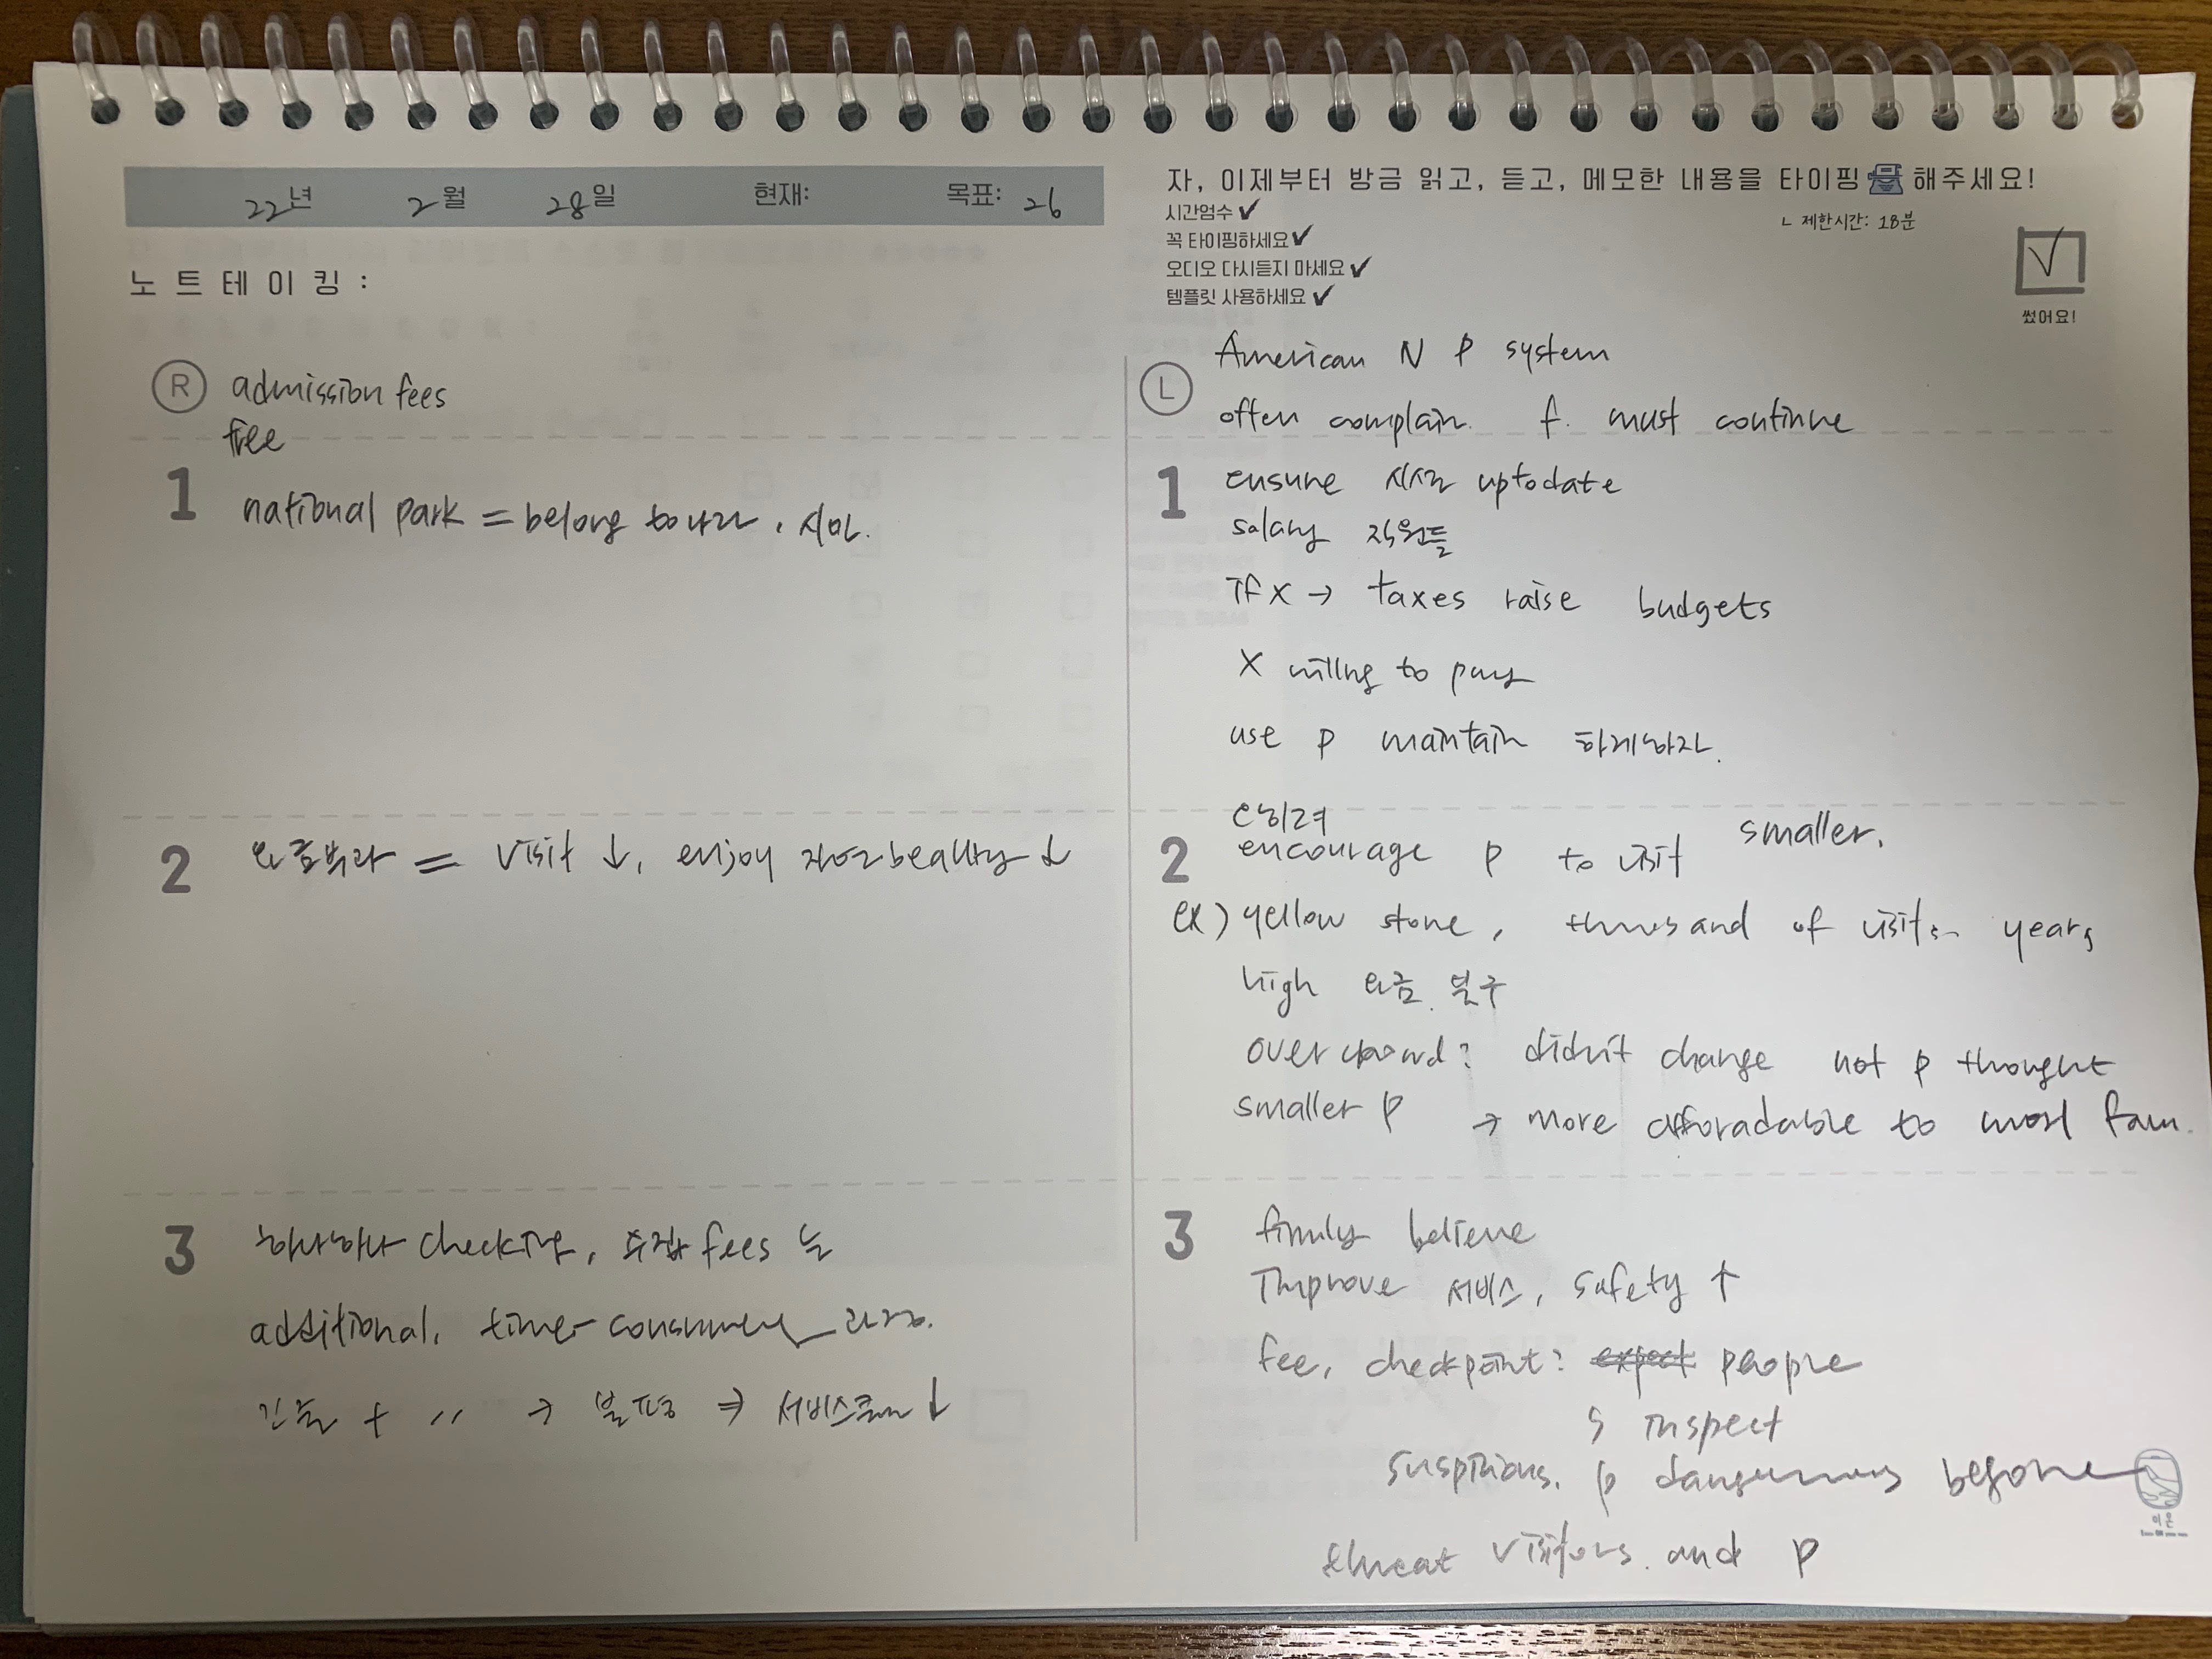 22년 2월 28일 현재: 목표: 26
노트테이킹:
R admission fees
free
1 national park = belong to 나라, 시민.
2 요금부과 = visit ↓, enjoy 자연 beauty ↓
3 하나하나 checking, 수집 fees 는
additional, time-consuming 과정.
긴줄 + 〃 → 불평 ⇒ 서비스 ↓
자, 이제부터 방금 읽고, 듣고, 메모한 내용을 타이핑 해주세요!
시간엄수 ✔
ㄴ 제한시간: 18분
꼭 타이핑하세요 ✔
오디오 다시듣지 마세요 ✔
템플릿 사용하세요 ✔
썼어요!
L American N P system
often complain. f. must continue
1 ensure 시설 uptodate
salary 직원들
if x → taxes raise budgets
X willing to pay
use p maintain 하게하자.
오히려
2 encourage p to visit smaller.
ex) yellow stone, thousand of visit years
high 요금 불구
over crowd? didn't change not p thought
smaller p → more afforadable to most fam.
3 firmly believe
Improve 서비스, safety ↑
fee, checkpoint: expect people
inspect
suspitious. p dangerous before
threat visitors. and p
이온